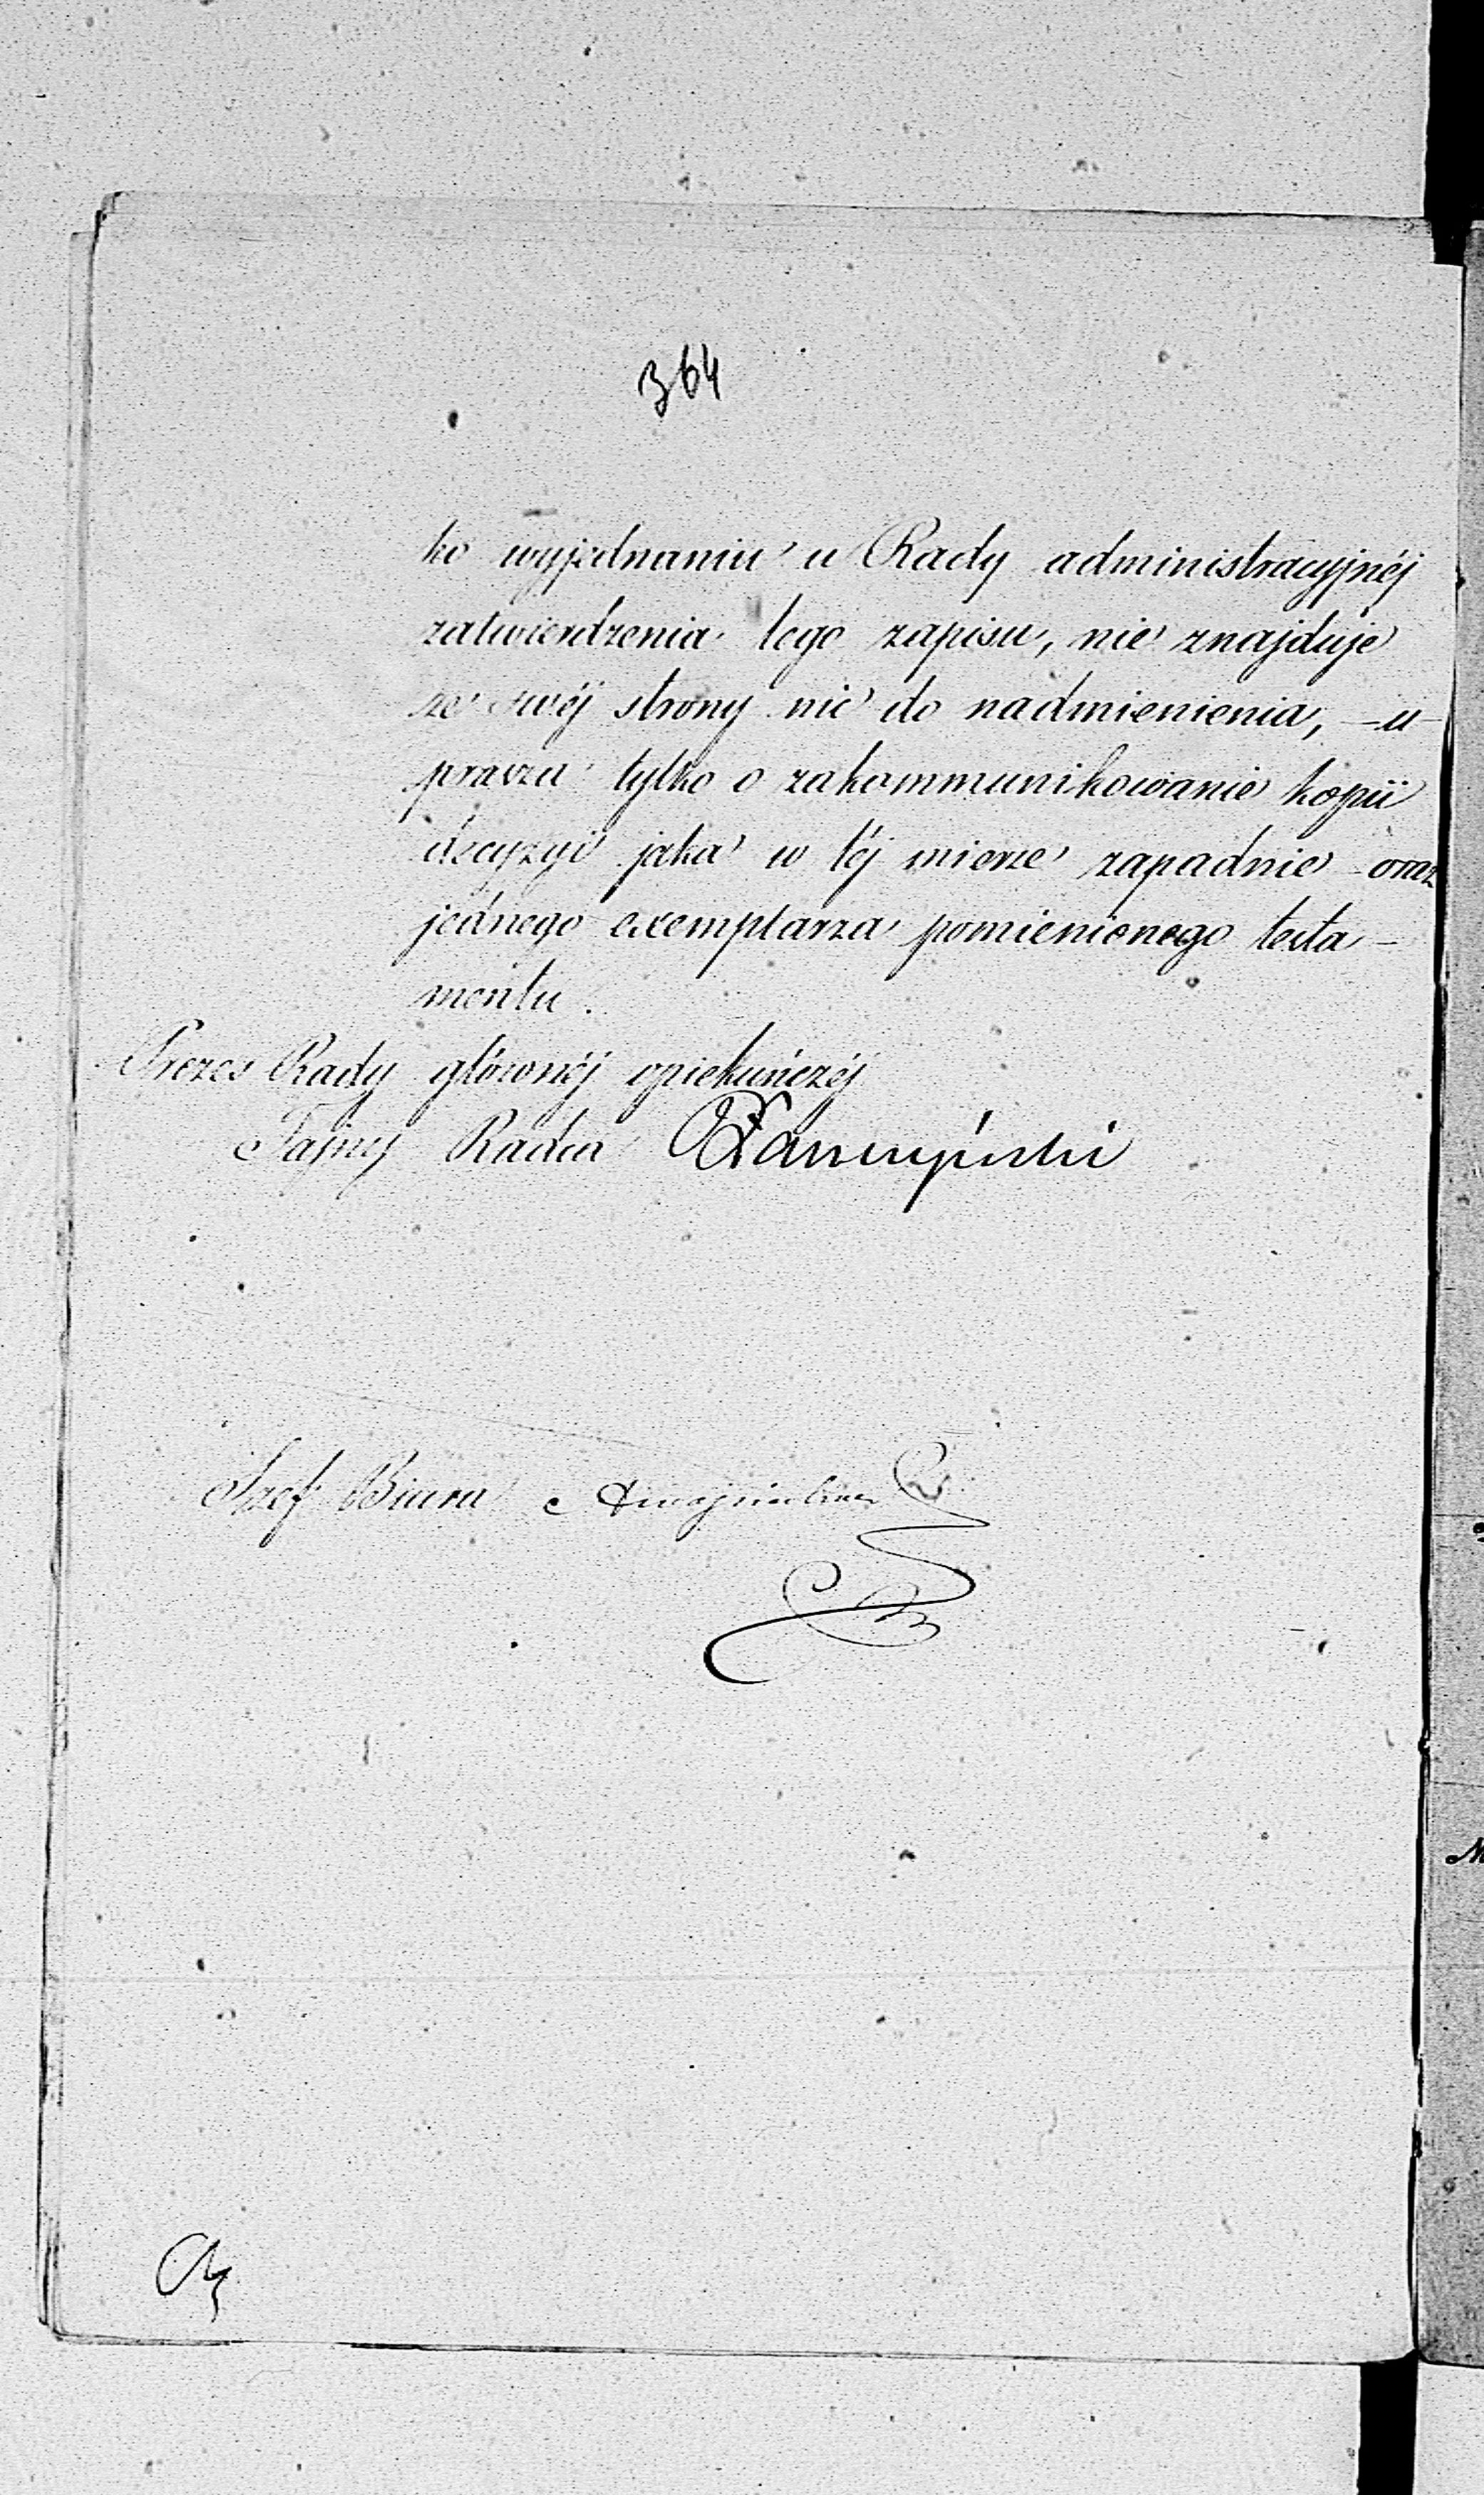 364
ko wyjednaniu u Rady administracyjnéj
zatwierdzenia tego zapisu, nie znajduje
ze swéj strony nic do nadmienienia, – u–
prasza tylko o zakommunikowanie kopii
decyzyi jaka w téj mierze zapadnie oraz
jednego exemplarza pomienionego testa–
mentu.
Prezes Rady głównéj opiekuńczéj
Tajny Radca
Szef Biura